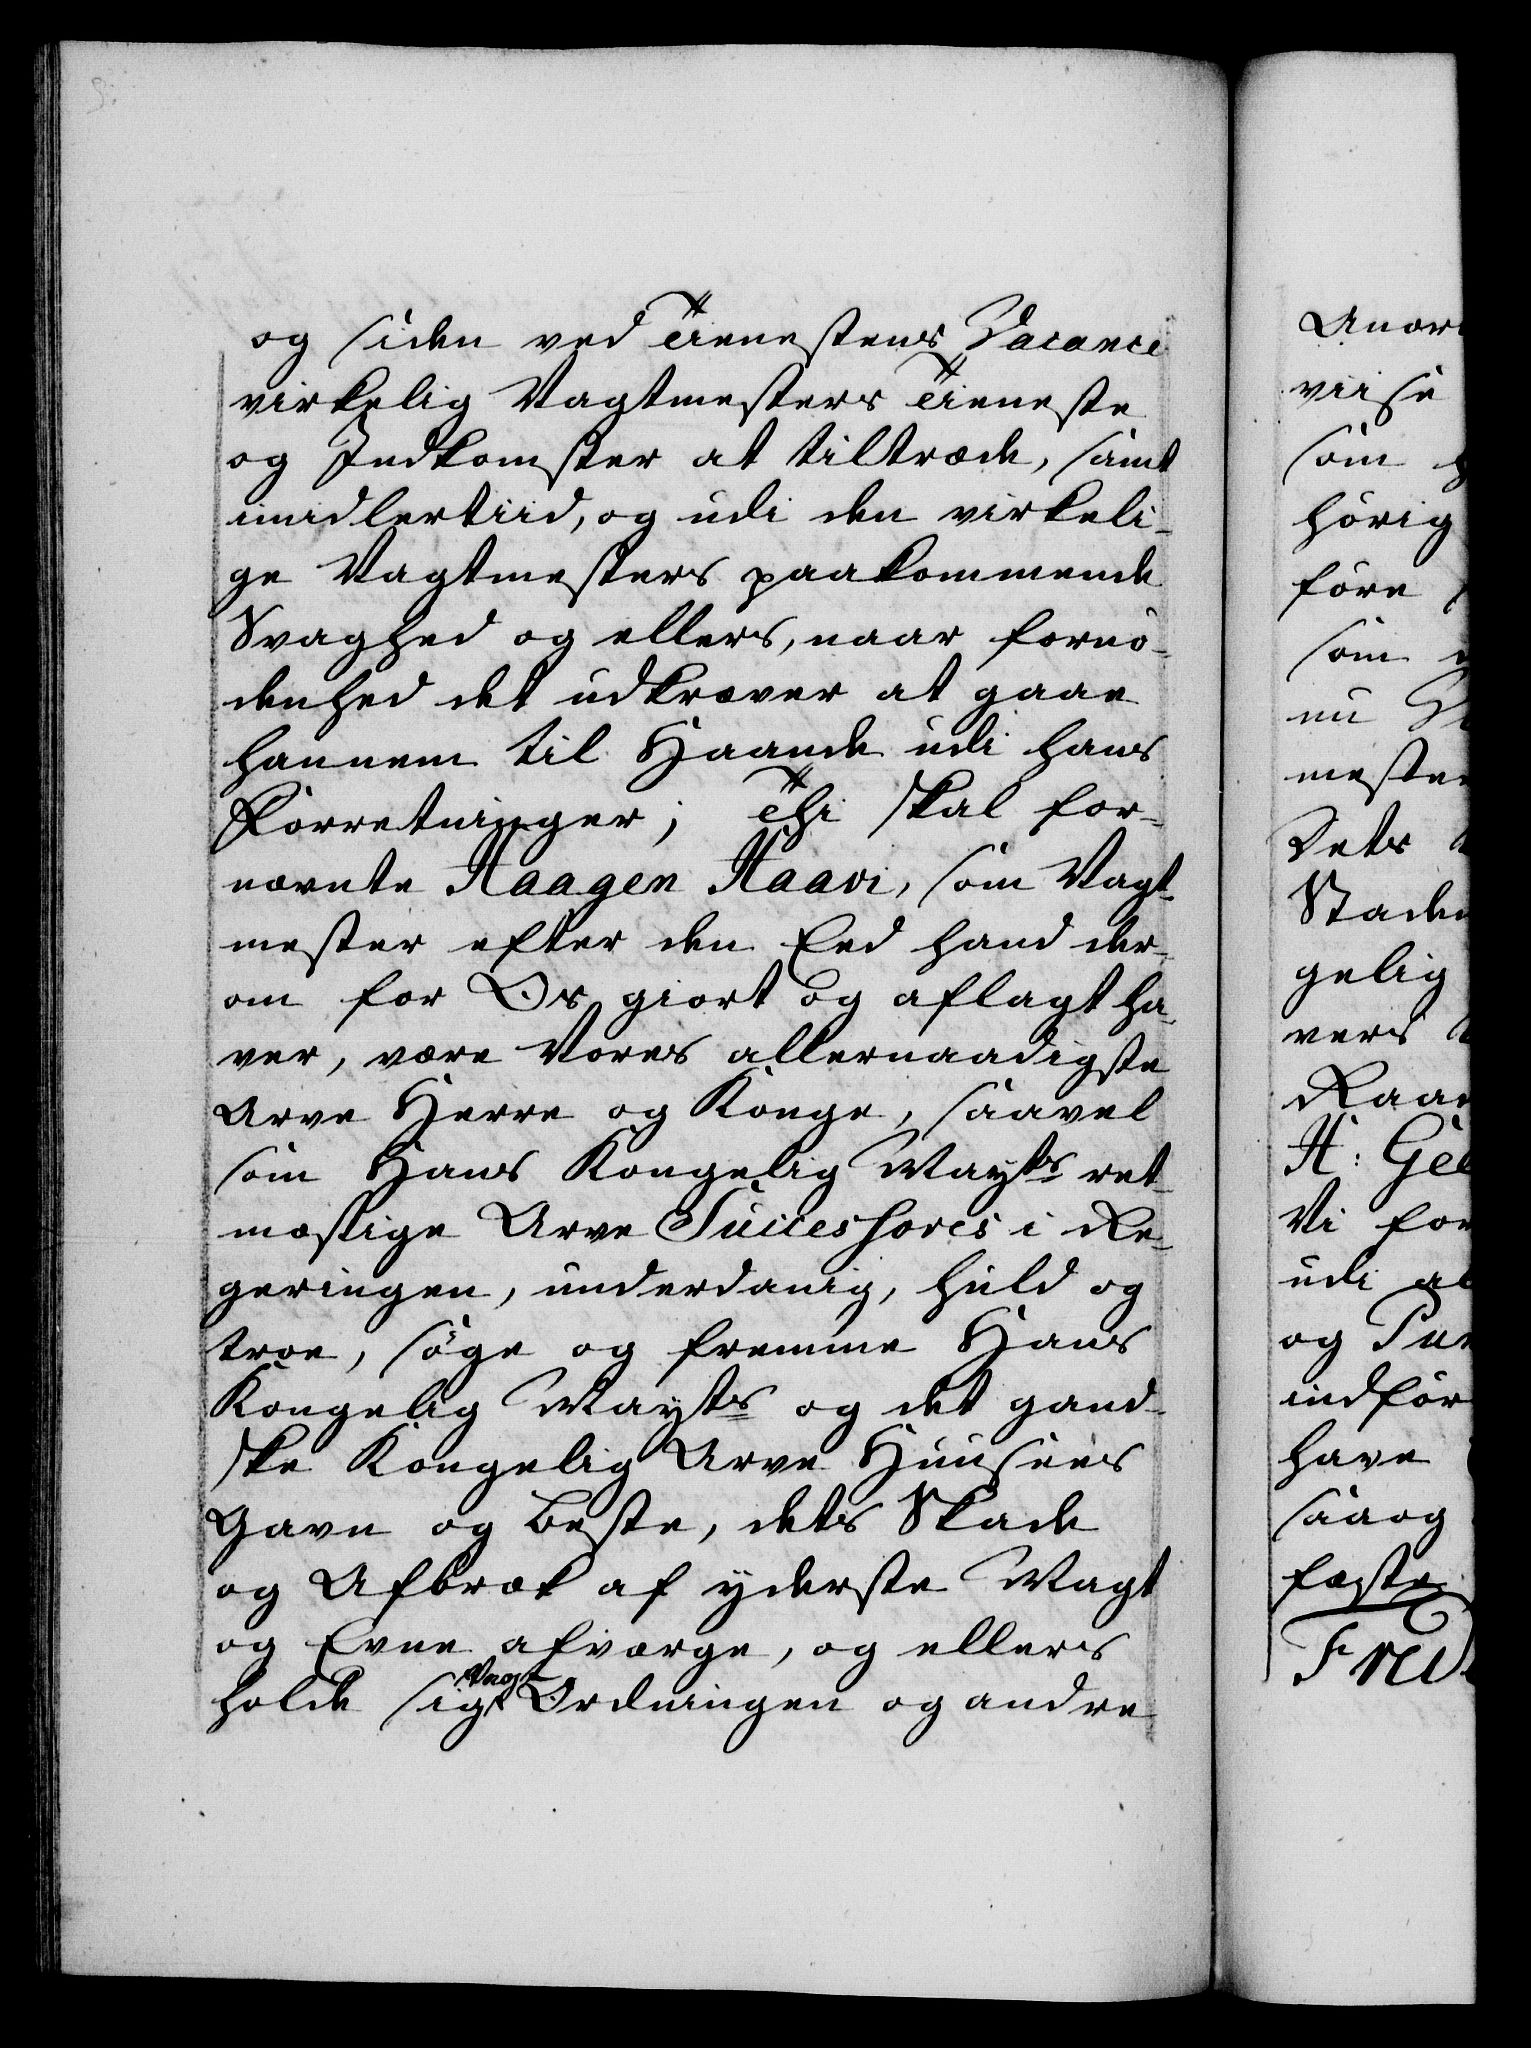 og siden ved Tienestens Vacance
virkelig Vagtmesters Tieneste
og Indkomster at tiltræde, samt
imidlertiid, og udi den virkeli-
ge Vagtmesters paakommende
Svaghed og ellers, naar fornö-
denhed det udkræver at gaae
hannem til Haande udi hans
Forretninger; Thi skal for-
nævnte Haagen Haavi, som Vagt-
mester efter den Eed hand der-
om for Os giort og aflagt ha-
ver, være Vores allernaadigste
Arve Herre og Konge, saavel
som Hans Kongelig Mayts ret-
mæssige Arve Successores i Re-
geringen, underdanig, huld og
troe, söge og fremme Hans
Kongelig Mayts og det gand-
ske Kongelig Arve Huuses
Gavn og beste, dets Skade
og Afbræk af yderste Magt
og Evne afværge, og ellers
holde sig Vagt Ordningen og andre
Anor
viise
som
hörig
före
som
nu
mester
Dets
Staden
gelig
vers
Raad
H: Gel
Vi for
udi al
og Pun
indför
have
saaog
fæste
Frid